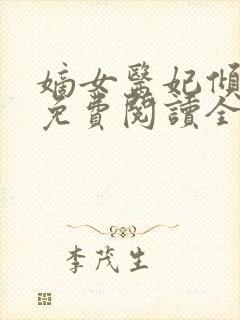 嫡女醫妃傾
免費閱讀全
李茂生